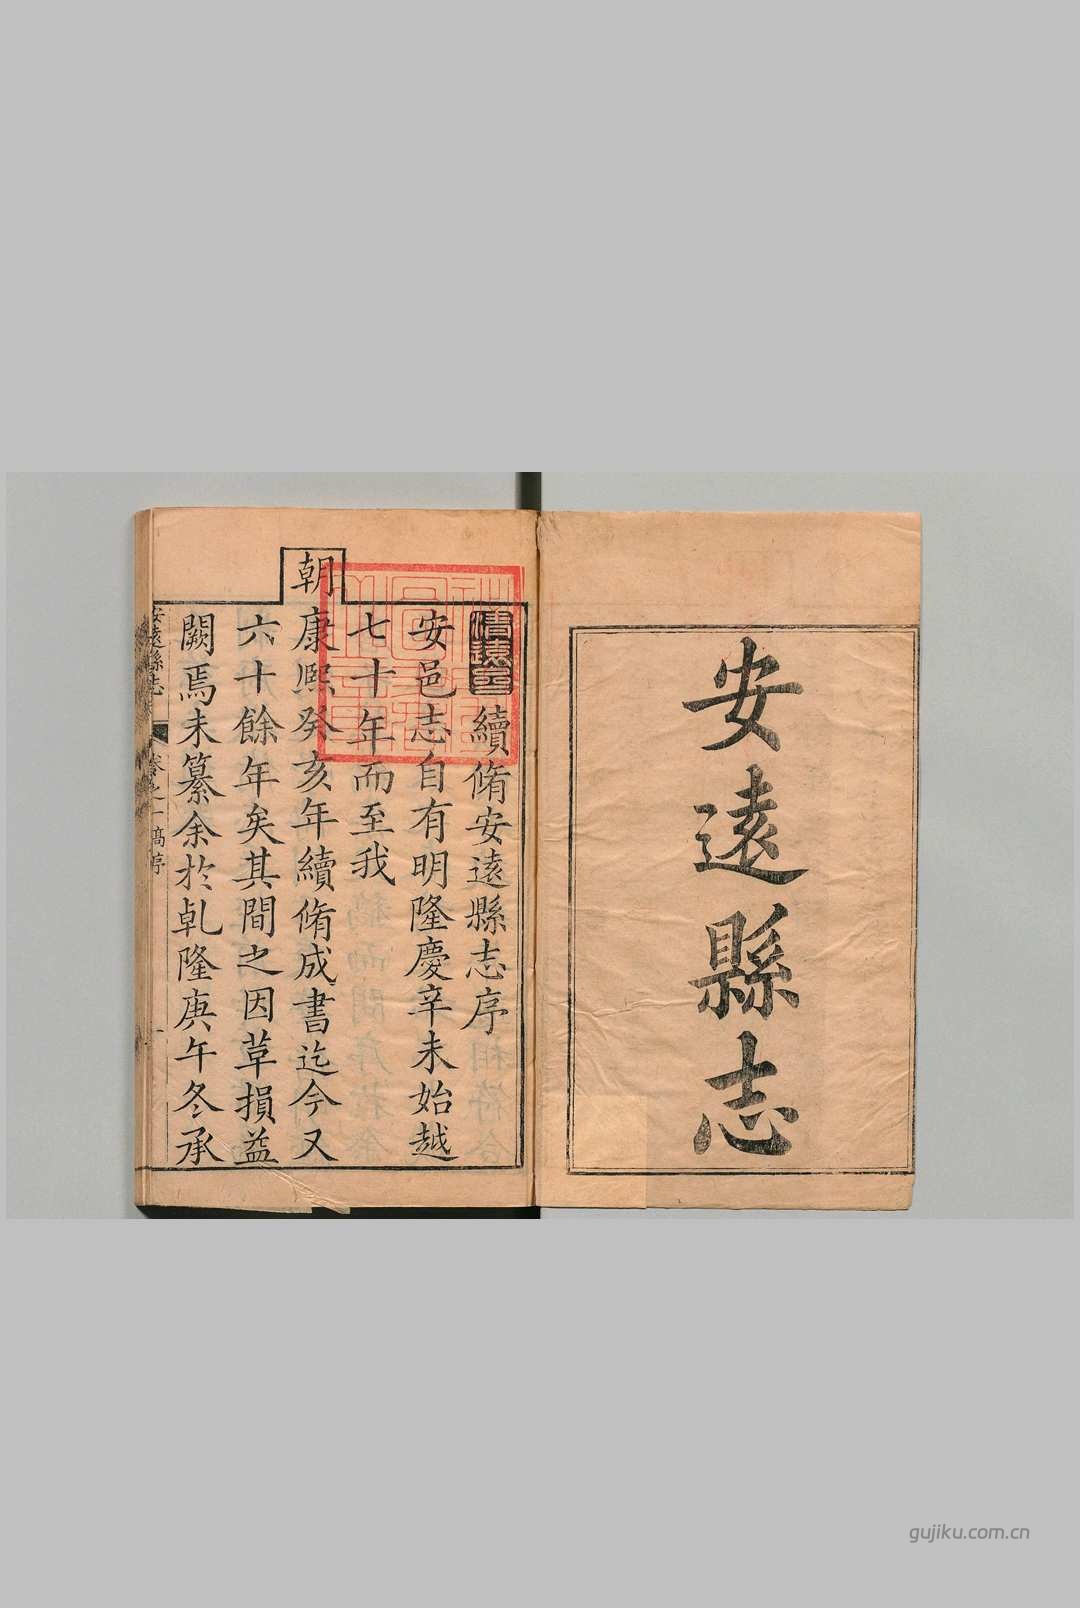 安遠縣志
續脩安遠縣志序
安邑志自有明隆慶辛未始越
七十年而至我
朝康熙癸亥年續脩成書迄今又
六十餘年矣其間之因草損益
闕焉未纂余於乹隆庚午冬承
安遠縣志
卷之一
序
一
gujiku.com.cn